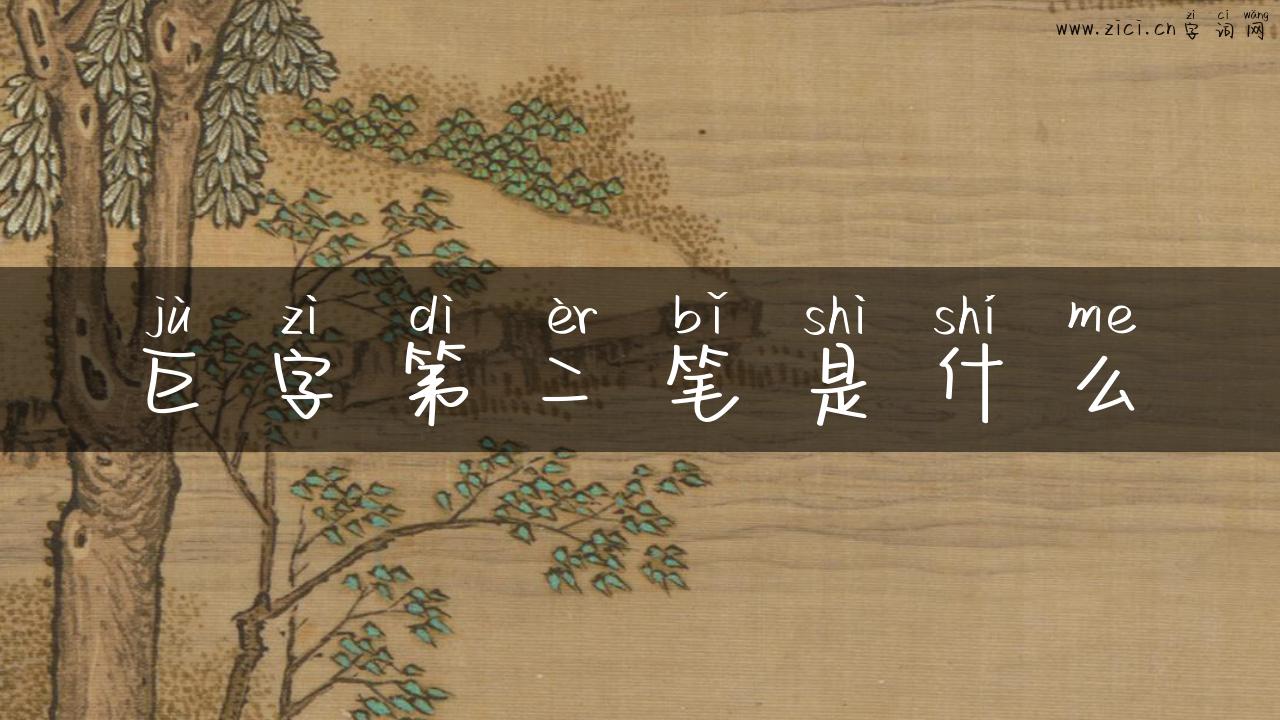 zì cí wǎng
www.zici.cn字词网
jù zì dì èr bǐ shì shí me
巨字第二笔是什么